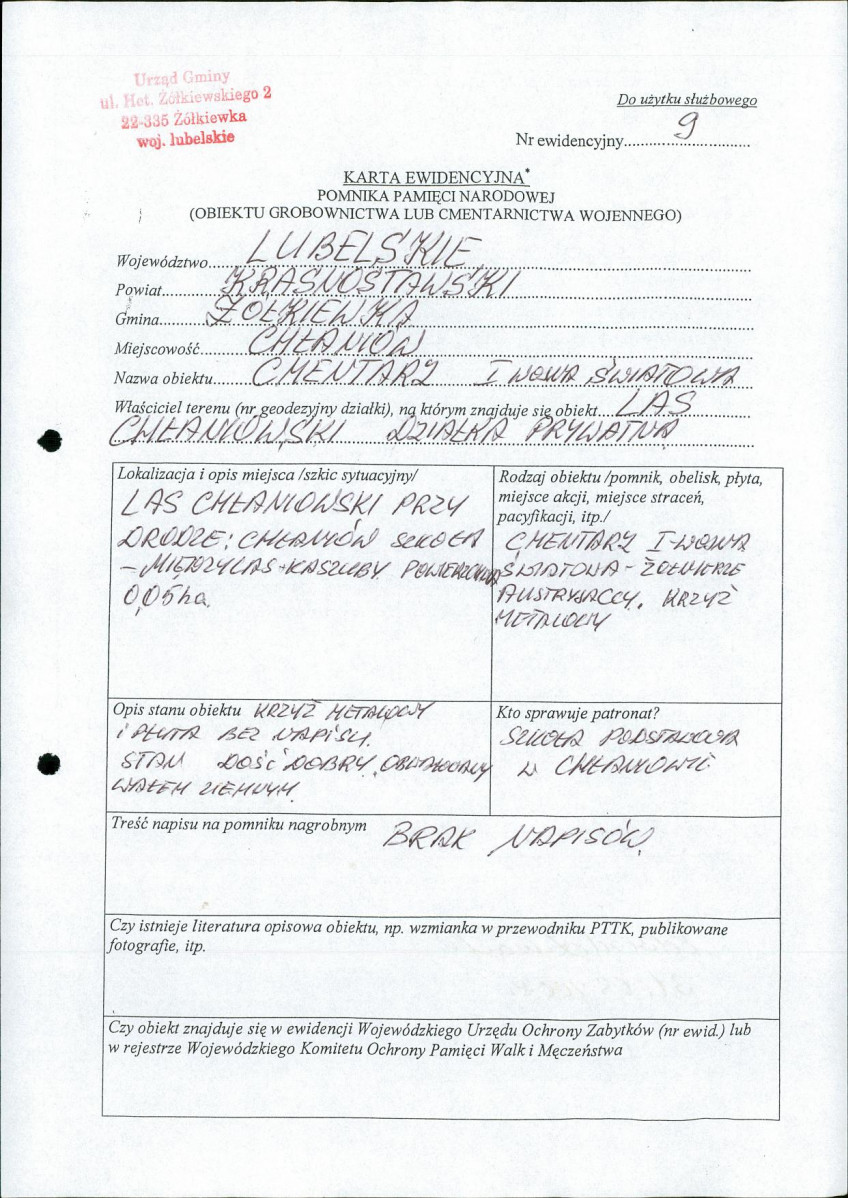 Urząd Gminy
ul. Het. Żółkiewskiego 2
22-335 Żółkiewka
woj. lubelskie
Do użytku służbowego
Nr ewidencyjny 9
KARTA EWIDENCYJNA*
POMNIKA PAMIĘCI NARODOWEJ
(OBIEKTU GROBOWNICTWA LUB CMENTARNICTWA WOJENNEGO)
Województwo LUBELSKIE
Powiat KRASNOSTAWSKI
Gmina ŻÓŁKIEWKA
Miejscowość CHŁANIÓW
Nazwa obiektu CMENTARZ I WOJNA ŚWIATOWA
Właściciel terenu (nr geodezyjny działki), na którym znajduje się obiekt LAS
CHŁANIOWSKI DZIAŁKA PRYWATNA
Lokalizacja i opis miejsca /szkic sytuacyjny/
LAS CHŁANIOWSKI PRZY
DRODZE: CHŁANIÓW SZKOŁA
– MIĘDZYLAS - KASZUBY.
0,05ha.
Rodzaj obiektu /pomnik, obelisk, płyta,
miejsce akcji, miejsce straceń,
pacyfikacji, itp./
CMENTARZ I-WOJNA
ŚWIATOWA – ŻOŁNIERZE
AUSTRYJACCY. KRZYŻ
METALOWY
Opis stanu obiektu KRZYŻ METALOWY
I PŁYTA BEZ NAPISU.
STAN DOŚĆ DOBRY
WAŁEM ZIEMNYM.
Kto sprawuje patronat?
SZKOŁA PODSTAWOWA
W CHŁANIOWIE
Treść napisu na pomniku nagrobnym BRAK NAPISÓW.
Czy istnieje literatura opisowa obiektu, np. wzmianka w przewodniku PTTK, publikowane
fotografie, itp.
Czy obiekt znajduje się w ewidencji Wojewódzkiego Urzędu Ochrony Zabytków (nr ewid.) lub
w rejestrze Wojewódzkiego Komitetu Ochrony Pamięci Walk i Męczeństwa